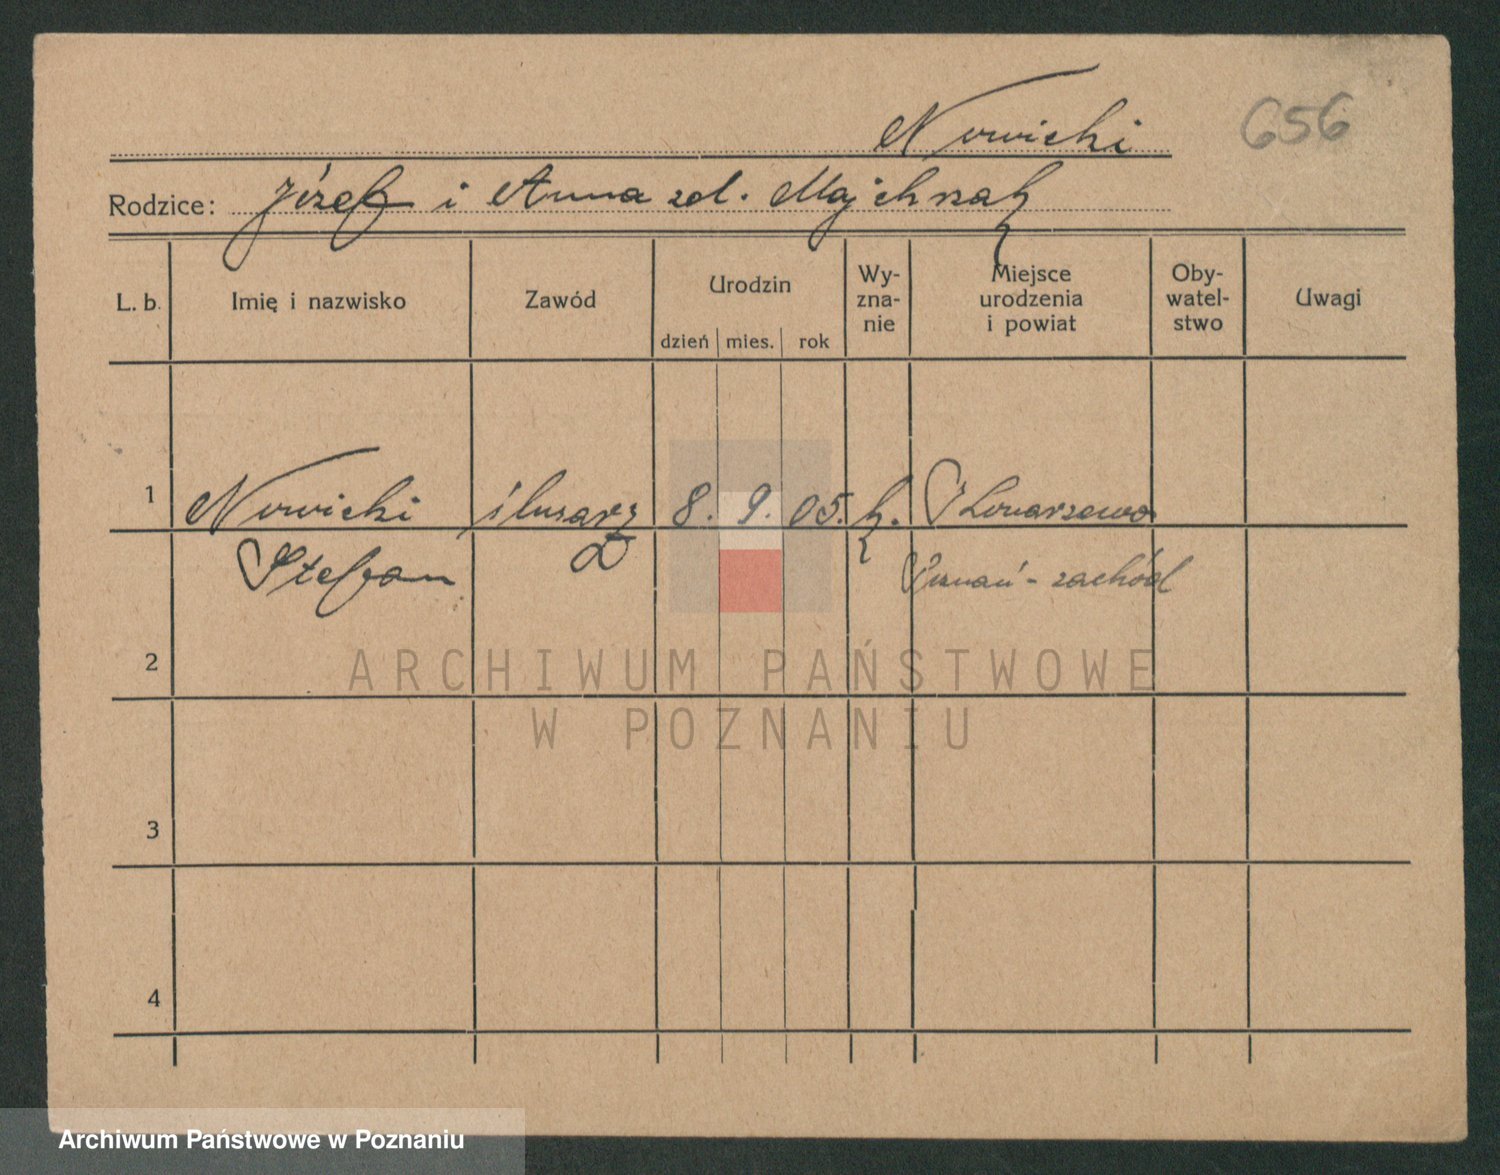 Nowicki 656
Rodzice: Józef i Anna zd. Majchrzak
L. b. Imię i nazwisko Zawód Urodzin dzień mies. rok Wy-zna-nie Miejsce urodzenia i powiat Oby-watel-stwo Uwagi
1 Nowicki ślusarz 8. 9. 05. k. Konarzewo
Stefan Poznań-zachód
2
ARCHIWUM PAŃSTWOWE
W POZNANIU
3
4
Archiwum Państwowe w Poznaniu